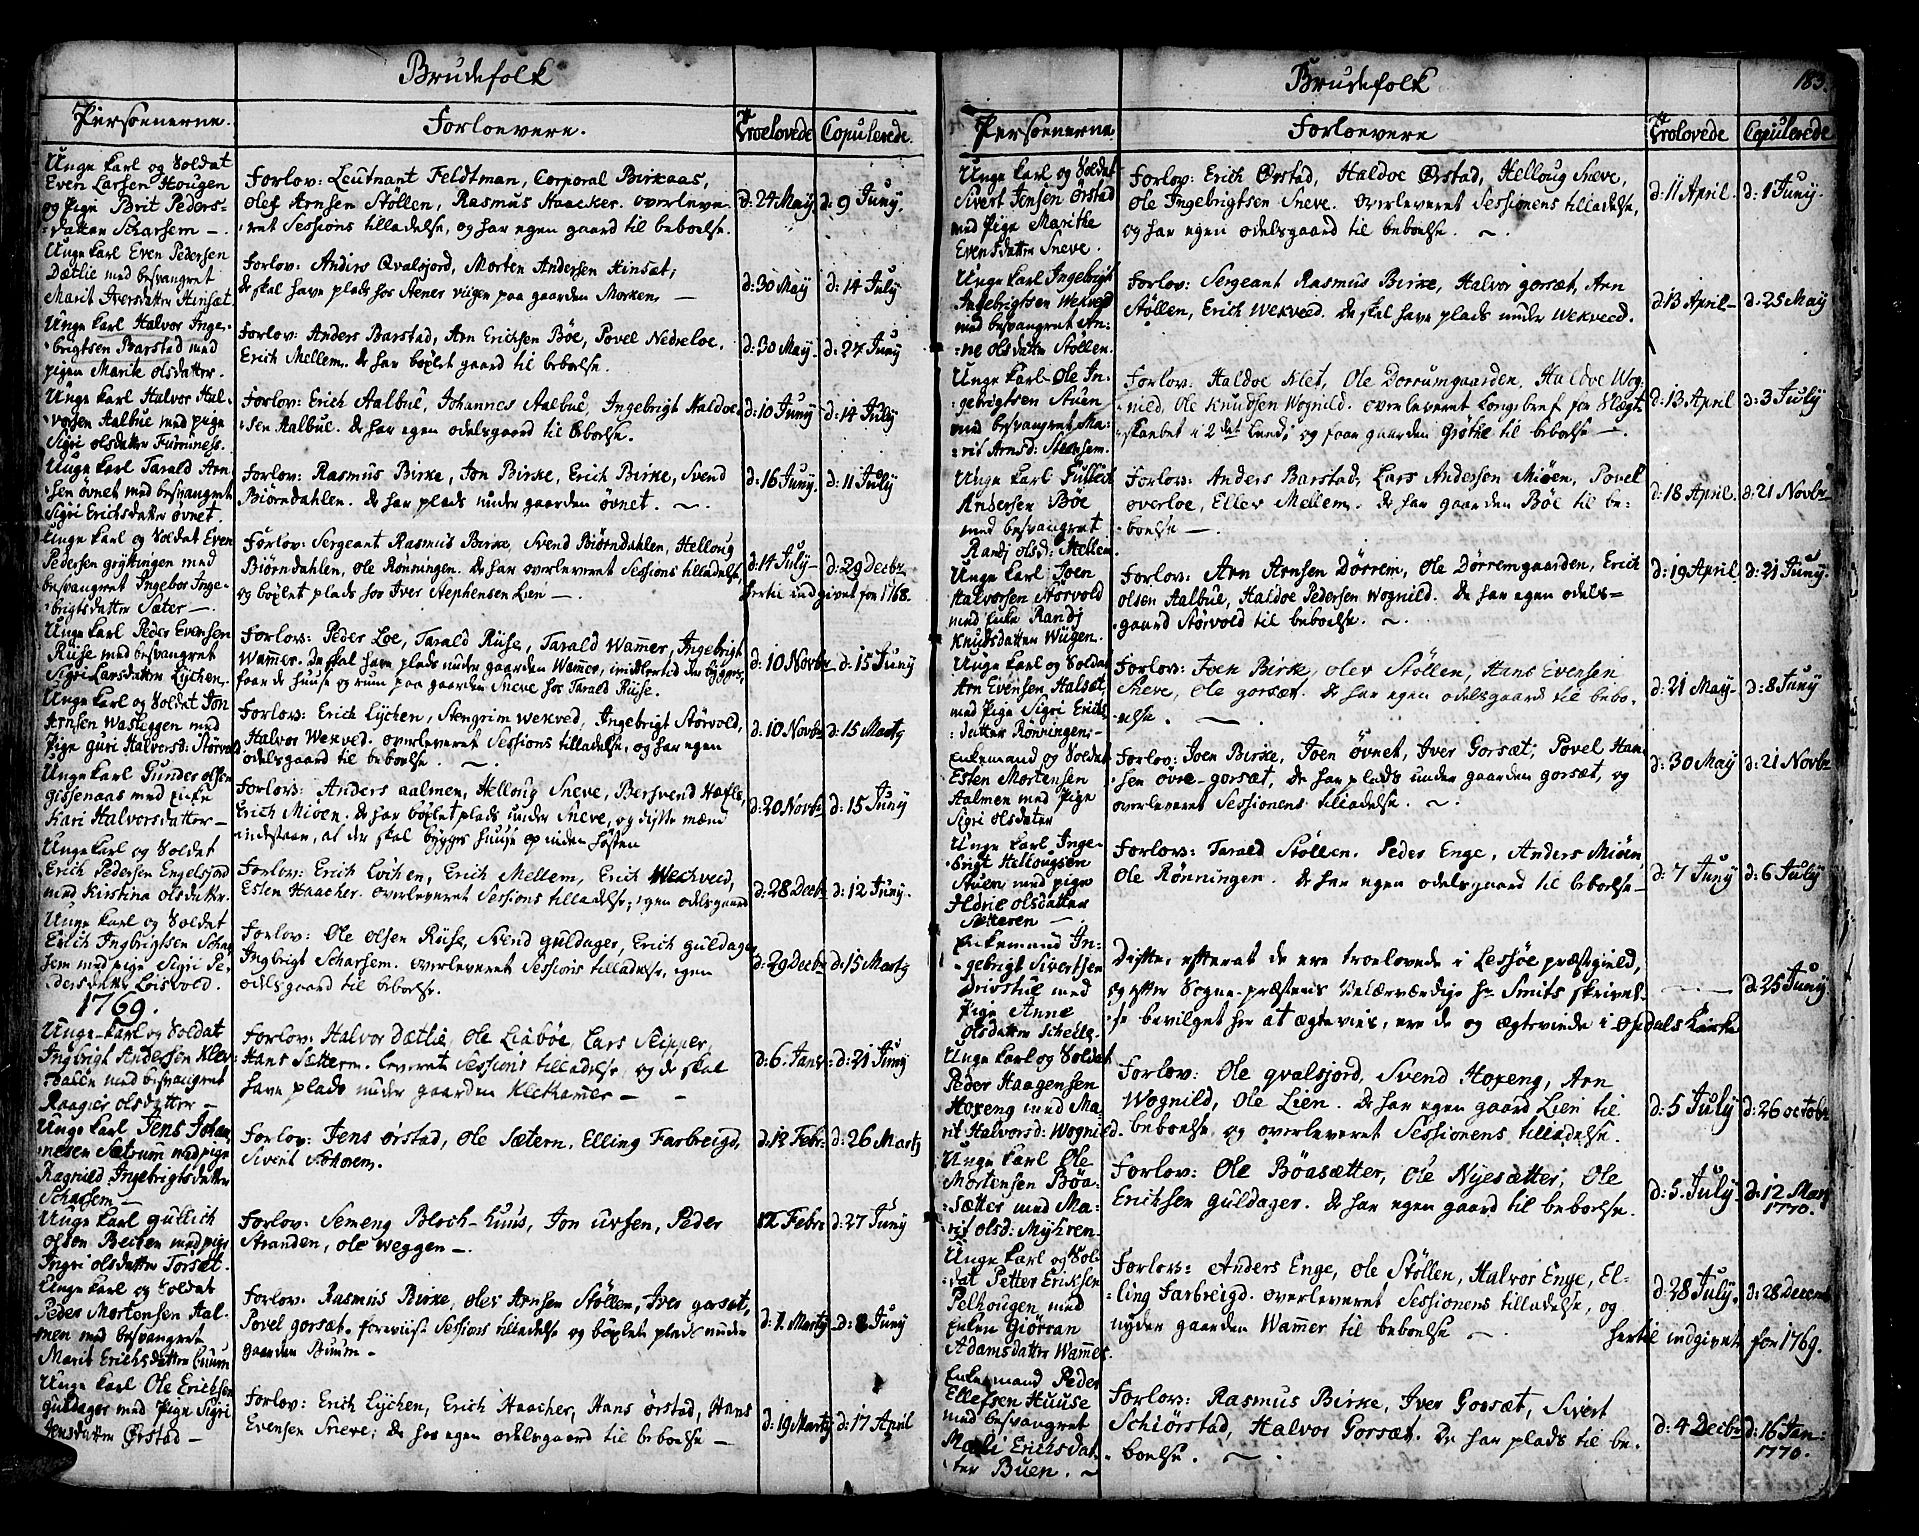 Brudefolk
Personerne.
Forloevere.
Troelovede
Copulerede.
Unge karl og Soldat
Even Larsen Hougen
og Pige Brit Peders-
datter Scharsem -
Forlov: Leutnant Feldtman, Corporal Birkaas,
Olef Arnsen Stöllen, Rasmus Haacker. overleve-
ret Sessions tilladelse, og har egen gaard til beboelse.
d: 24 May.
d: 9 Juny.
Unge karl Even Pedersen
Dætlie med besvangret
Marit Iversdatter Hinsæt
Forlov: Anders Qvalsjord, Morten Andersen Hinsæt;
de skal have plads hos Stener viigen paa gaarden Morken, -
d: 30 May
d: 14 July
Unge karl Halvor Inge-
brigtsen Barstad med
pigen Marit olsdatter.
Forlov: Anders Barstad, Arn Erichsen Böe, Povel Nedreloe,
Erich Mellem. de har böxlet gaard til beboelse.
d: 30 May.
d: 27 Juny
Unge karl Halvor Hal-
vorsen Aalbuë med pige
Sigri olsdatter Furuness.
Forlov: Erich Aalbuë, Johannes Aalbuë, Ingebrigt Haldoe-
sen Aalbuë. de har egen odelsgaard til beboelse.
d: 10 Juny
d: 14 July
Unge karl Tarald Arn-
sen övnet med besvangret
Sigri Erichsdatter övnet.
Forlov: Rasmus Birke, Jon Birke, Erich Birke, Svend
Biörndahlen. de har plads under gaarden övnet. -
d: 16 Juny.
d: 11 July
Unge karl og Soldat Even
Pedersen gryttingen med
besvangret Ingebor Inge-
brigtsdatter Sæter -
Forlov: Sergeant Rasmus Birke, Svend Biörndahlen, Helloug
Biörndahlen, Ole Rönningen. de har overleveret Sessions tilladelse,
og böxlet plads hos Iver Stephensen Lien -
d: 14 July -
d: 29 Decbr
hertil indgivet for 1768.
Unge karl Peder Evensen
Riise med besvangret
Sigri Larsdatter Lÿchen.
Forlov: Peder Loe, Tarald Riise, Tarald Wammer, Ingebrigt
Wammer. de skal have plads under gaarden Wammer, imidlertid der bygges
faar de huuse og rum paa gaarden Sneve hos Tarald Riise.
d: 10 Novbr
d: 15 Juny
Unge karl og Soldat Jon
Arnsen Wasliggen med
Pige guri Halvorsd: Störvold
Forlov: Erich Lÿchen, Stengrim Wekved, Ingebrigt Störvold,
Halvor Wekved. overleveret Sessions tilladelse, og har egen
odelsgaard til beboelse. -
d: 10 Novbr
d: 15 Marty
Unge karl Gunder olsen
gissenaas med Enke
Kari Halvorsdatter -
Forlov: Anders aalmen, Helloug Sneve, Bersvend Hæfle,
Erich Miöen. de har böxlet plads under Sneve, og disse mænd
indestaar, at der skal bygges huuse op inden hösten
d: 20 Novbr
d: 15 Juny
Unge karl og Soldat
Erich Pedersen Engelsjord
med Kirstina olsdatter.
Forlov: Erich Lÿchen, Erich Mellem, Erich Weckveed,
Esten Haacher. overleveret Sessions tilladelse; egen odelsgaard
d: 28 Decbr
d: 12 Juny.
Unge karl og Soldat
Erich Ingbrigtsen Schar-
sem med pige Sigri Pe-
dersdatter Loisvold.
Forlov: Ole olsen Riise, Svend guldager, Erich guldager,
Ingbrigt Scharsem. overleveret Sessions tilladelse, egen
odelsgaard til beboelse.
d: 29 Decbr
d: 15 Marty
1769.
Unge karl og Soldat
Ingbrigt Andersen Klev-
med besvangret
Raagier olsdatter -
Forlov: Halvor Dætlie, Ole Liaböe, Lars Seipper,
Hans Sættern. leveret Sessions tilladelse og de skal
have plads under gaarden Kleckammer -
d: 6 Janr
d: 21 Juny
Unge karl Jens Johan-
nesen Sætrum med pige
Ragnild Ingebrigtsdatter
Scharsem -
Forlov: Jens örstad, Ole Sætern, Elling Farbreigd,
Sivert Schorem.
d: 12 Febr:
d: 26 Marty
Unge karl gutlich
olsen Becken med pige
Ingri olsdatter Torsæt.
Forlov: Semeng Bloch-huus, Jon ursen, Peder
Stranden, Ole Weggen -
12 Febr
d: 27 Juny
Unge karl og Soldat
Peder Mortensen Aal-
men med besvangret
Marit Erichsdatter buum
Forlov: Rasmus Birke, olev Arnsen Stöllen, Iver gorsæt,
Povel gorsæt. foreviist Sessions tilladelse og böxlet plads under
gaarden -
d: 1. Marty
d: 8 Juny
Unge karl Ole Erichsen
guldager med Pige Sigri
Jensdatter Örstad -
Forlov: Erich Lÿchen, Erich Haacher, Hans örstad, Hans
Evensen Sneve; de har egen odelsgaard til beboelse -
d: 19 Marty
d: 17 April
Brudefolk
183.
Personerne
Forloevere
Trolovede
Copulerede
Unge karl og Soldat
Sivert Jensen Örstad
med Pige Marithe
Evensdatter Sneve.
Forlov: Erich Örstad, Haldoe Örstad, Helloug Sneve,
Ole Ingebrigtsen Sneve. overleveret Sessionens tilladelse,
og har egen odelsgaard til beboelse. -
d: 11 April.
d: 1 Juny.
Unge karl Ingebrigt
Ingebrigtsen Wekved
med besvangret An-
ne olsdatter Stöllen.
Forlov: Sergeant Rasmus Birke, Halvor gorsæt, Arn
Stöllen, Erich Wekveed. de skal have plads under Wekveed.
d: 13 April -
d: 25 May
Unge karl Ole In-
gebrigtsen Stuen
med besvangret Ma-
rit Arnsd: Steensem.
Forlov: Haldoe Klet, Ole Dorrumgaarden, Haldoe Wog-
nild, Ole Knudsen Wognild. overleveret Kongebref for Slægt-
skabet i 2det Leed, og faar gaarden Gröthe til beboelse -
d: 13 April
d: 3 July
Unge karl
Andersen Böe
med besvangret
Randj olsd: Mellem
Forlov: Anders Barstad, Lars Andersen Miöen, Povel
overloe, Ellev Mellem. de har gaarden Böe til be-
boelse -
d: 18 April.
d: 21 Novbr
Unge karl Joen
Halvorsen Störvold
med Enke Randj
Knudsdatter Wiigen.
Forlov: Arn Arnsen Dörrem, Ole Dörremgaarden, Erich
olsen Aalbuë, Haldoe Pedersen Wognild. de har egen odels-
gaard Störvold til beboelse. -
d: 19 April
d: 21 Juny.
Unge karl og Soldat
Arn Evensen Halset
med Pige Sigri Erichs-
datter Rönningen.
Forlov: Joen Birke, olev Stöllen, Hans Evensen
Sneve, Ole gorsæt. de har egen odelsgaard til bebo-
else. -
d: 21 May-
d: 8 Juny
Enkemand og Soldat
Esten Mortensen
Aalmen med Pige
Sigri olsdater
Forlov: Joen Birke, Joen övnet, Iver Gorsæt; Povel Han-
sen övre-gorsæt. de har plads under gaarden gorsæt, og
overleveret Sessionens tilladelse. -
d: 30 May
d: 21 Novbr
Unge karl Inge-
brigt Hellougsen
Stuen med pige
Ildrie olsdatter
Sætteren -
Forlov: Tarald Stöllen. Peder Enge, Anders Miöen
Ole Rönningen. de har egen odelsgaard til beboelse -
d: 7 Juny
d: 6 July
Enkemand In-
gebrigt Sivertsen
drivstul med
Pige Anne
olsdatter Schelle.
Disse, efterat de ere troelovede i Lessöe præstegield,
og efter Sogne-præstens Velærværdige hr Smits skrivel-
se bevilget her at ægtevies, ere de og ægteviede i opdals Kirke
d: 25 Juny.
Unge karl og Soldat
Peder Haagensen
Hoxeng med Ma-
rit Halvorsd: Wognild.
Forlov: Ole qvalsjord, Svend Hoxeng, Arn
Wognild, Ole Lien. de har egen gaard Lien til
beboelse og overleveret Sessionens tilladelse.
d: 5 July
d: 26 octobr
Unge karl Ole
Mortensen Böa-
sætter med Ma-
rit olsd: Myhren
Forlov: Ole Böasætter, Ole Nyesætter, Ole
Erichsen guldager. de har egen gaard til beboelse.
d: 5. July
d: 12 Mart
1770.
Unge karl og Sol-
dat Petter Eriksen
Pelhougen med
Enken Giörran
Adamsdatter Wammer.
Forlov: Anders Enge, Ole Stöllen, Halvor Enge, El-
ling Farbreigd. overleveret Sessionens tilladelse, og
nyder gaarden Wammer til beboelse -
d: 28 July.
d: 28 Decemb
hertil indgivet for 1769.
Enkemand Peder
Ellefsen Huuse
med besvangret
Marli Erichsdat-
ter Buen. -
Forlov: Rasmus Birke, Iver Gorsæt, Sivert
Schiörstad, Halvor Gorsæt. de har plads til be-
boelse. -
d: 4 Decbr
d: 16 Jan:
1770.